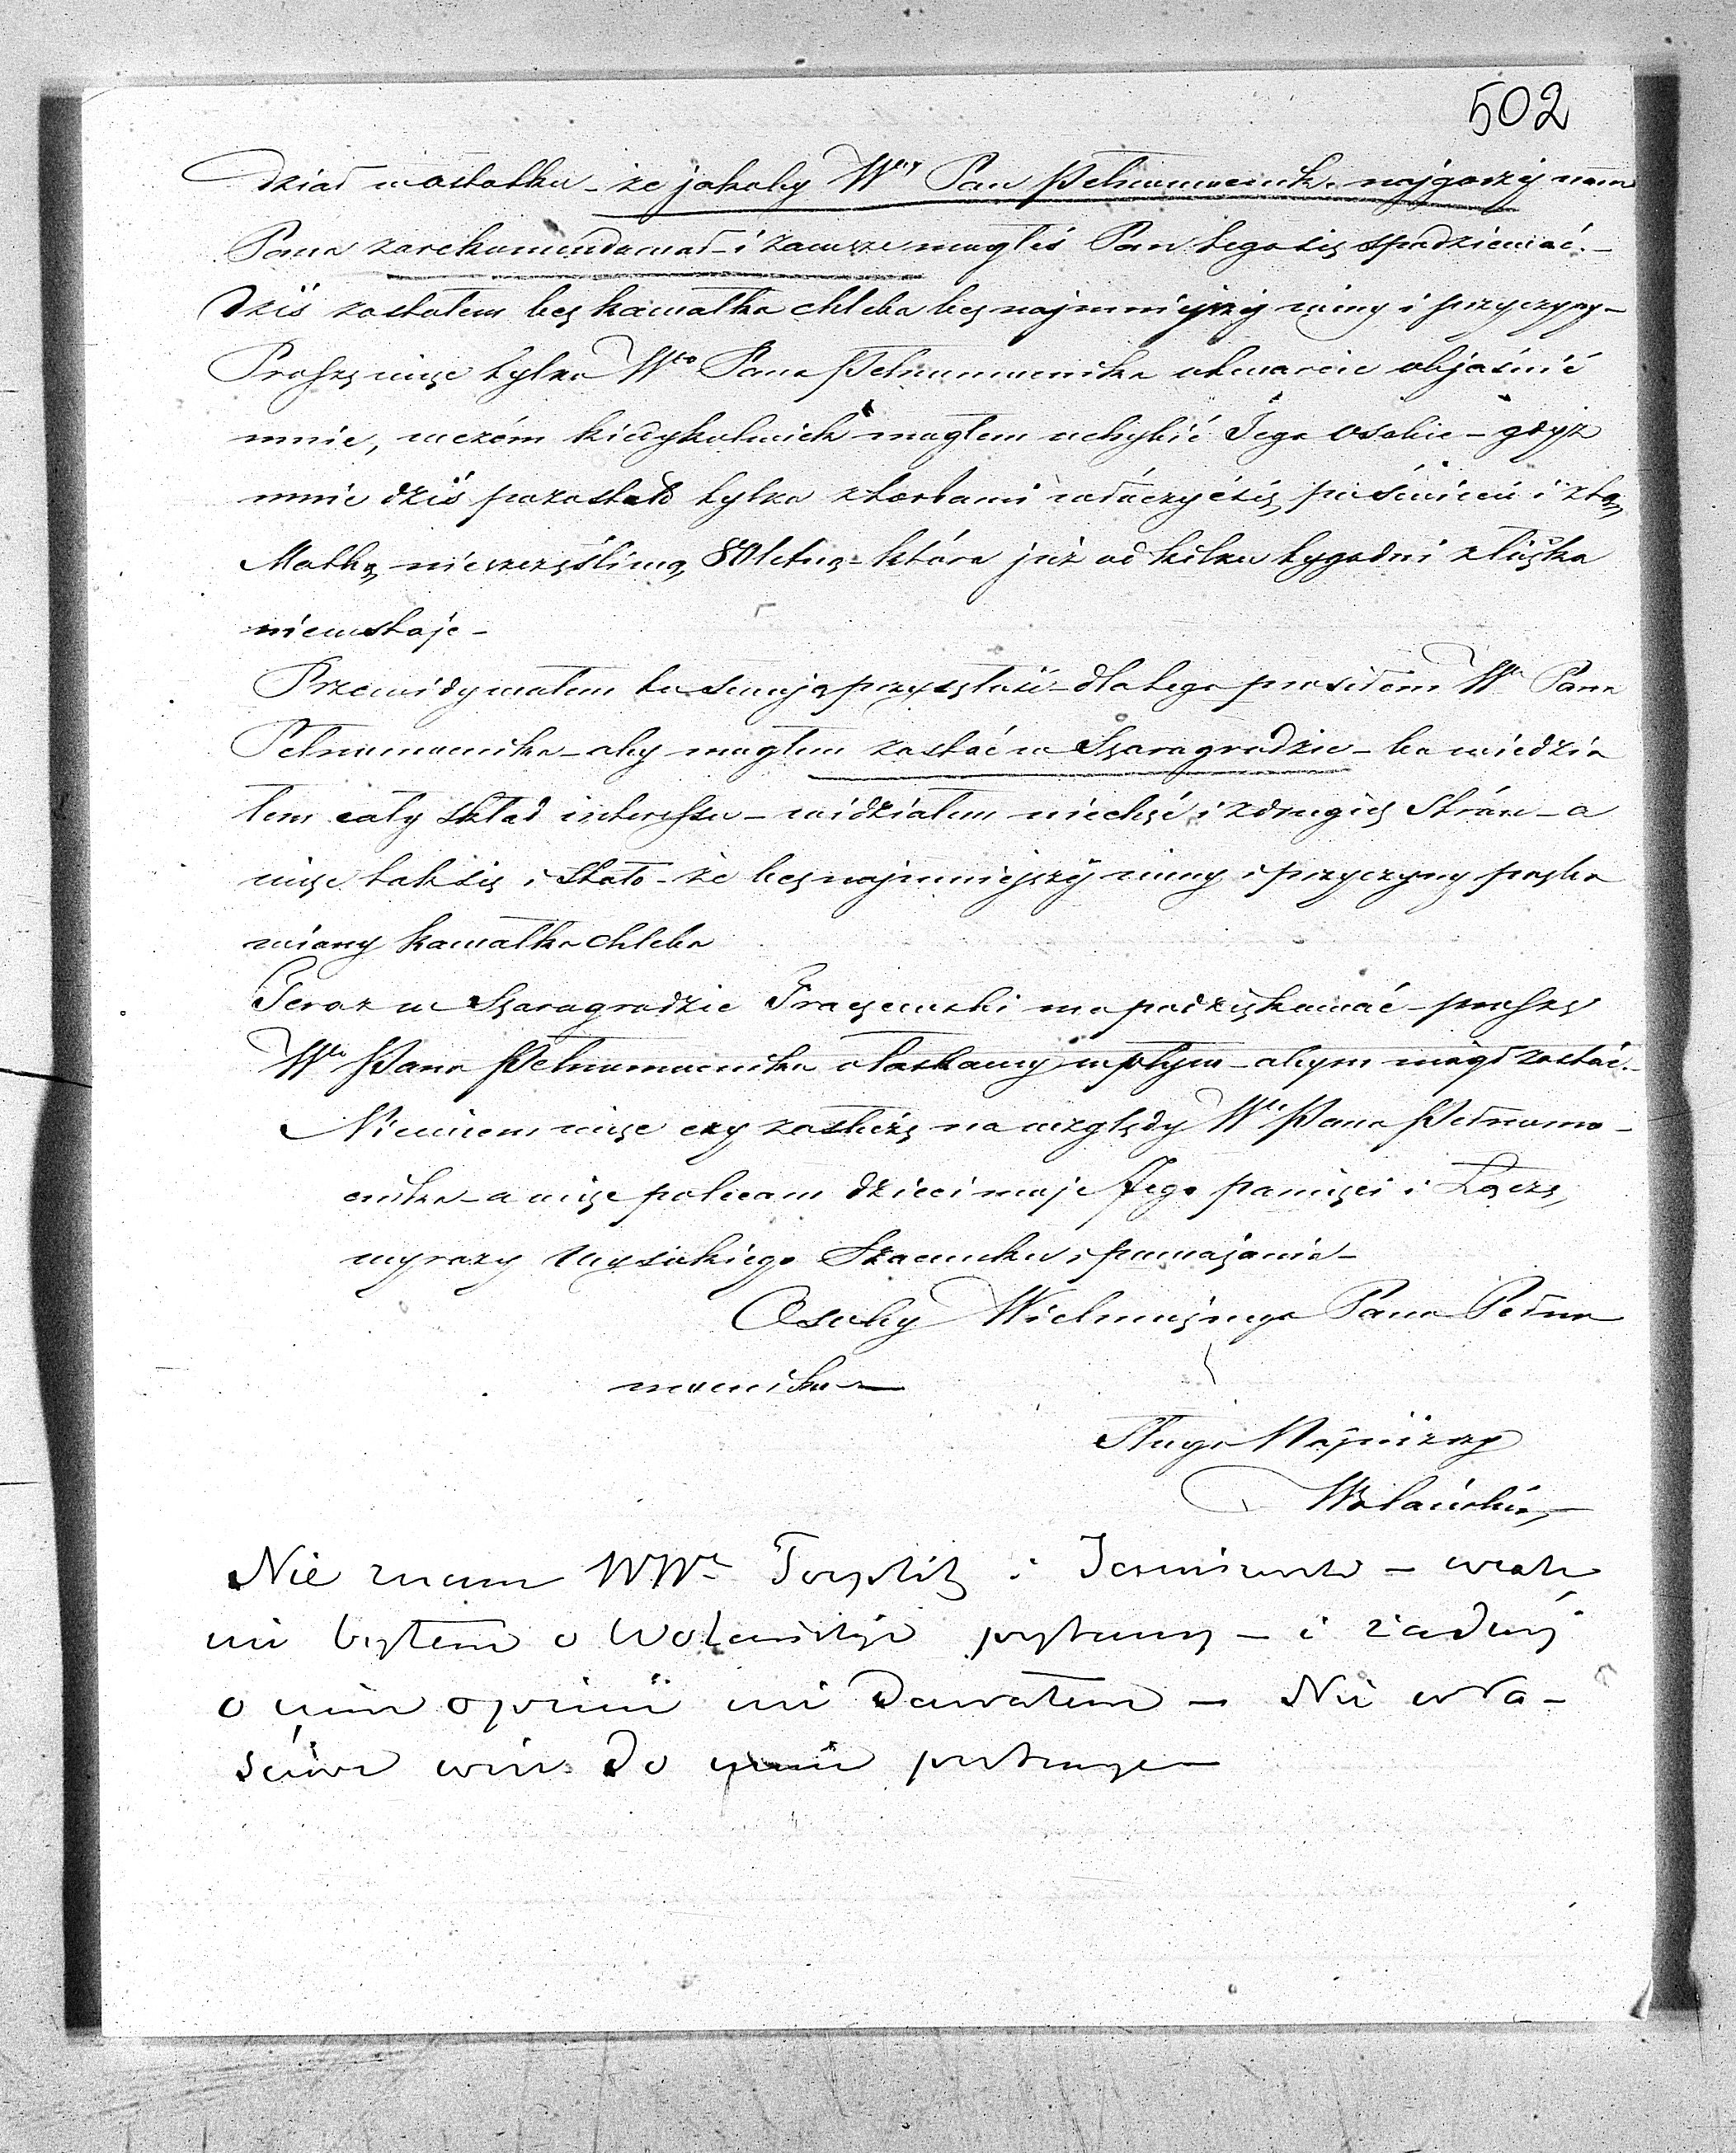 502
dział w ostatku - że jakoby Wny Pan Pełnomocnik. najgorzej nam
Pana zarekomendował - i zawsze mogłeś Pan tego się spodziewać. -
Dziś zostałem bez kawałka chleba bez najmniejszej winy i przyczyny -
Proszę więc tylko Wgo Pana Pełnomocnika otwarcie objaśnić
mnie, w czém kiedykolwiek mogłem uchybić Jego Osobie - gdyż
mnie dziś pozostało tylko z torbami włóczyć się po świecie i z tą
Matką nieszczęśliwą 80 letnią - która już od kilku tygodni z łóżka
niewstaje -
Przewidywałem tu swoją przyszłość - dla tego prosiłem Wo Pana
Pełnomocnika - aby mogłem zostać w Szarogrodzie - bo wiedzia
łem cały skład interessu - widziałem niechęć i z drugiej Strón - a
więc tak się i Stało - że bez najmniejszej winy i przyczyny pozba
wiony kawałka chleba
Teraz w Szarogrodzie ma podziękować - proszę
Wo Pana Pełnomocnika o łaskawy wpływ - abym mógł zostać. -
Niewiem więc czy zasłużę na względy Wo Pana Pełnomo -
cnika - a więc polecam dzieci moje Jego pamięci i Łączę
wyrazy wysokiego Szacunku i poważania -
Osoby Wielmożnego Pana Pełno
mocnika -
Sługa Najniższy
Wolański
Nie znam WWch i -
ni byłem o Wolańskiego pytany - i żadnej
o nim opinii ni dawałem - Nie wła -
ściwe więc do mnie